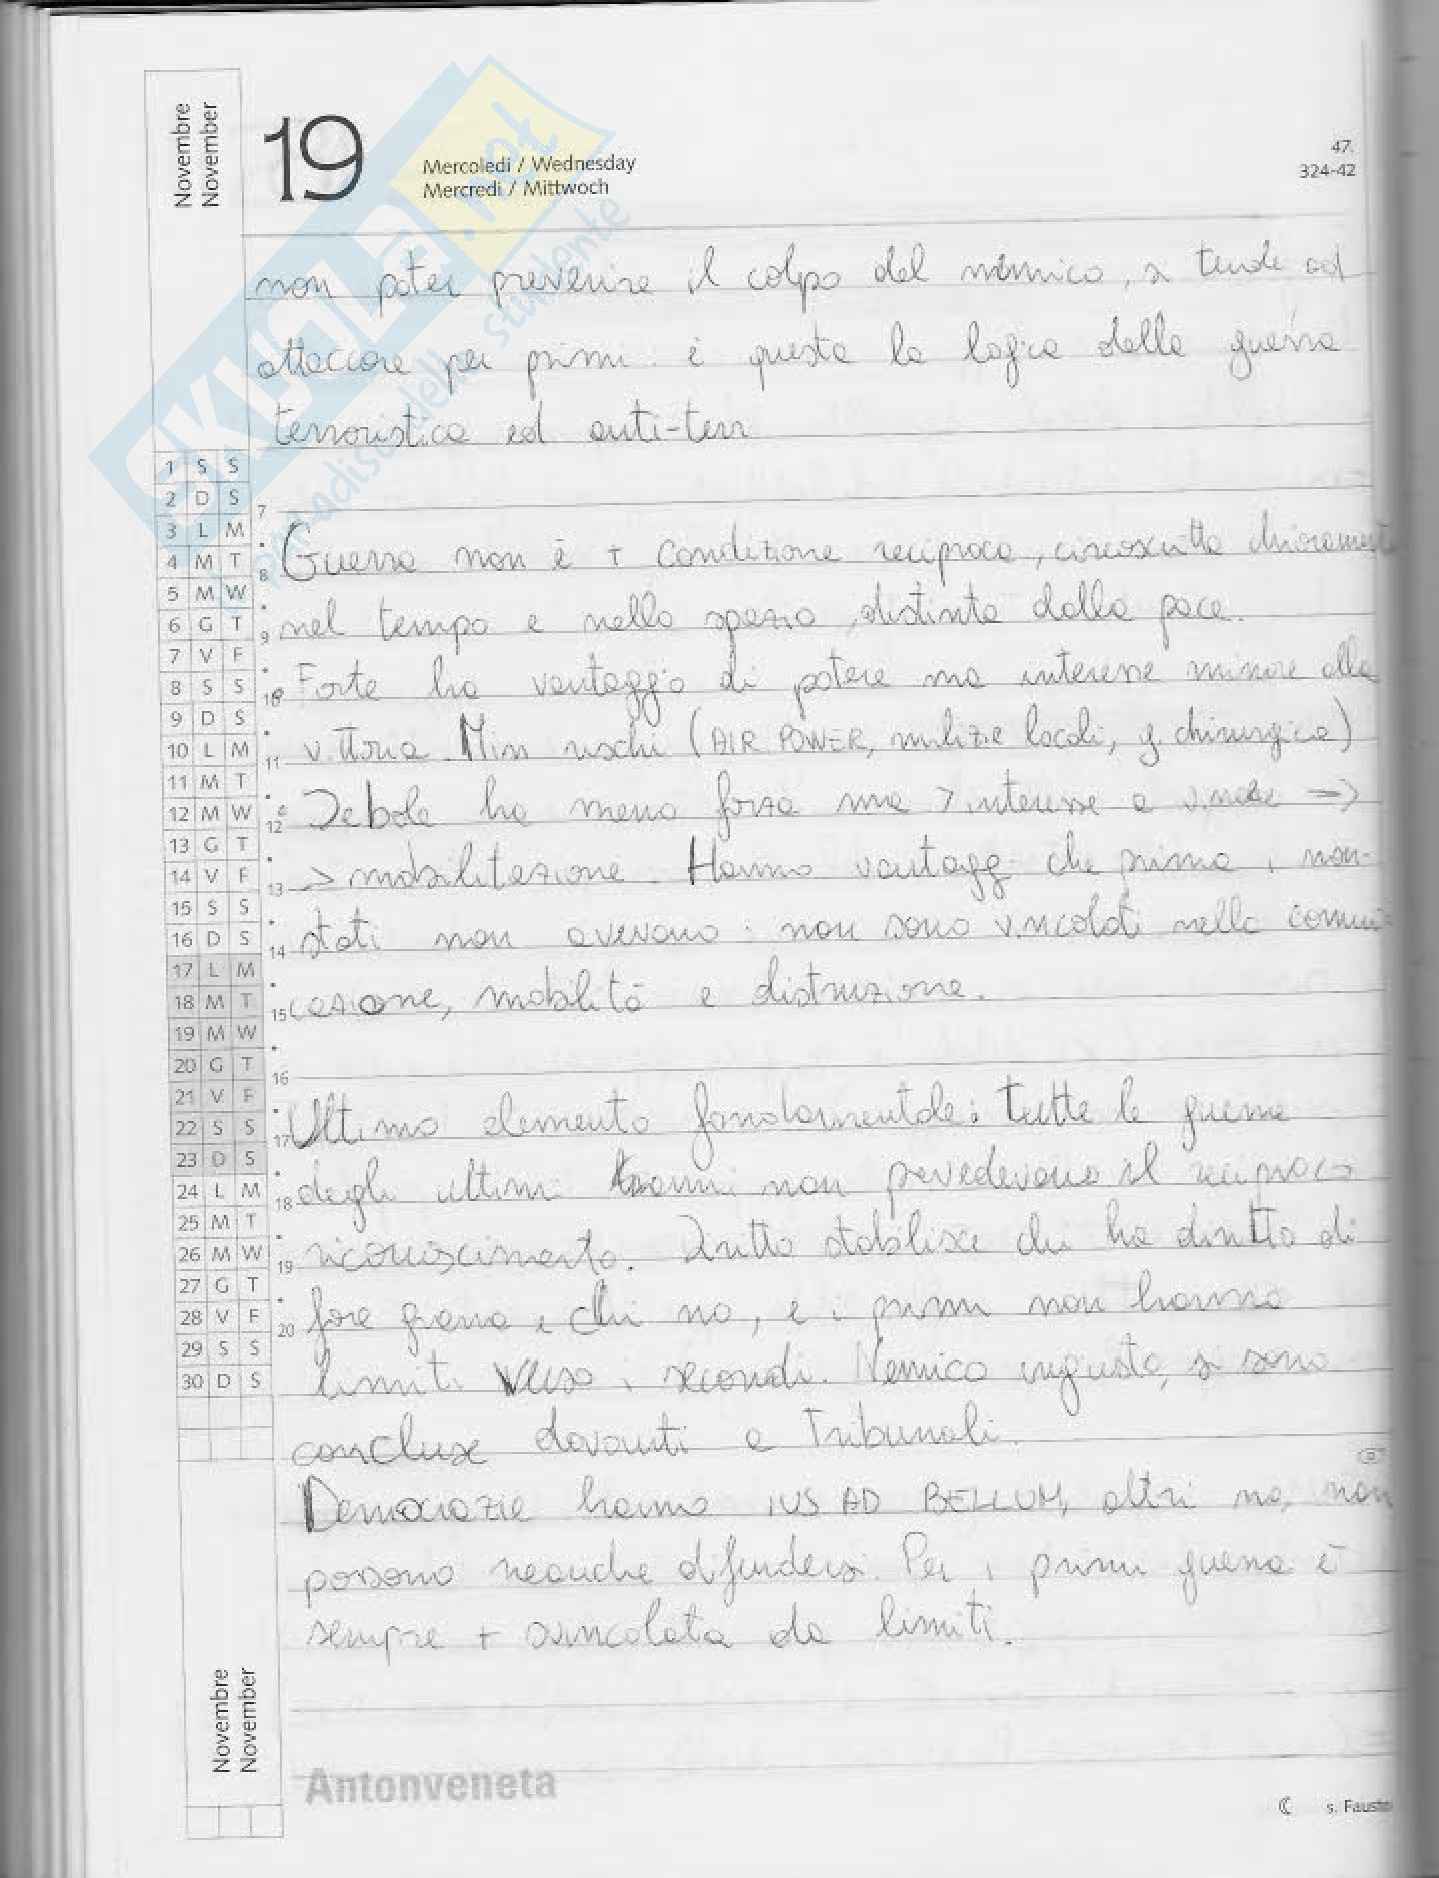 Novembre
November
19
Mercoledì / Wednesday
Mercredi / Mittwoch
47.
324-42
SKUOLA.net
paradiso dello studente
non poter prevenire il colpo del nemico, si tende ad
attaccare per primi. è questa la logica della guerra
terroristica ed anti-terr
Guerra non è + condizione reciproca, circoscritta chiaramente
nel tempo e nello spazio, distinta dalla pace.
Forte ha vantaggio di potere ma interesse minore alla
vittoria. Min rischi (AIR POWER, milizie locali, g. chirurgica)
Debole ha meno forza ma > interesse a vincere =>
> mobilitazione. Hanno vantaggi che prima i non-
stati non avevano: non sono vincolati nella comuni-
cazione, mobilità e distruzione.
Ultimo elemento fondamentale: tutte le guerre
degli ultimi anni non prevedevano il reciproco
riconoscimento. Diritto stabilisce chi ha diritto di
fare guerra e chi no, e i primi non hanno
limiti verso i secondi. Nemico ingiusto, si sono
concluse davanti a Tribunali.
Democrazie hanno IUS AD BELLUM, altri no, non
possono neanche difendersi. Per i primi guerra è
sempre + svincolata da limiti.
1 S S
2 D S
3 L M
4 M T
5 M W
6 G T
7 V F
8 S S
9 D S
10 L M
11 M T
12 M W
13 G T
14 V F
15 S S
16 D S
17 L M
18 M T
19 M W
20 G T
21 V F
22 S S
23 D S
24 L M
25 M T
26 M W
27 G T
28 V F
29 S S
30 D S
7
8
9
10
11
12
13
14
15
16
17
18
19
20
Novembre
November
Antonveneta
s. Fausto